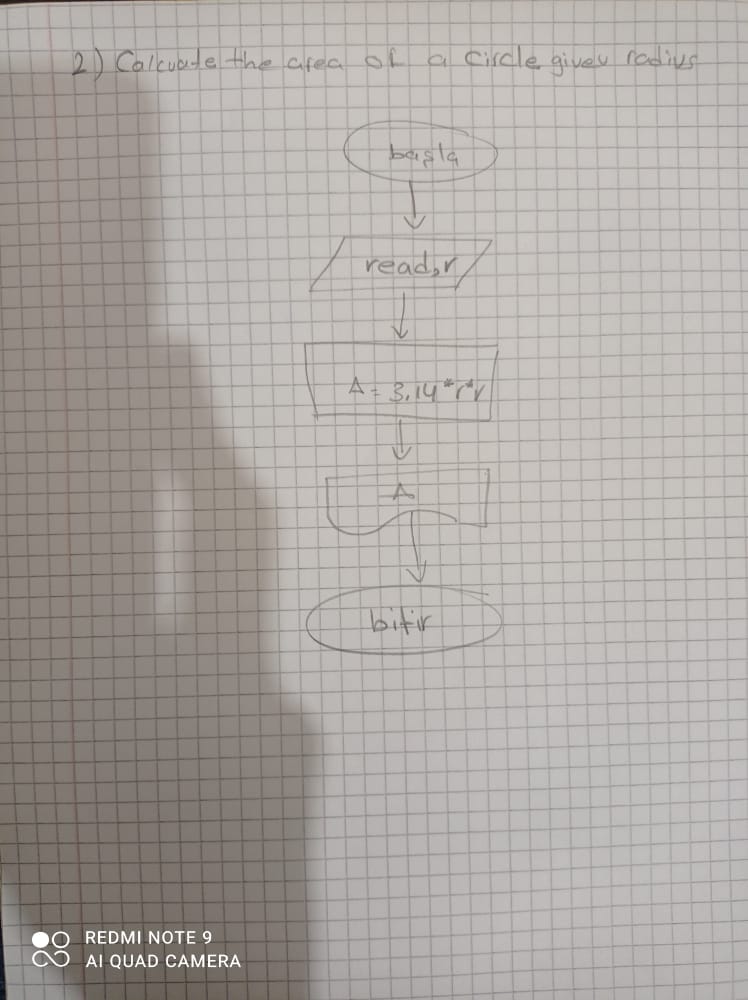 2) Calcuate the area of a circle given radius
başla
read,r
A = 3.14*r*r
A
bitir
REDMI NOTE 9
AI QUAD CAMERA